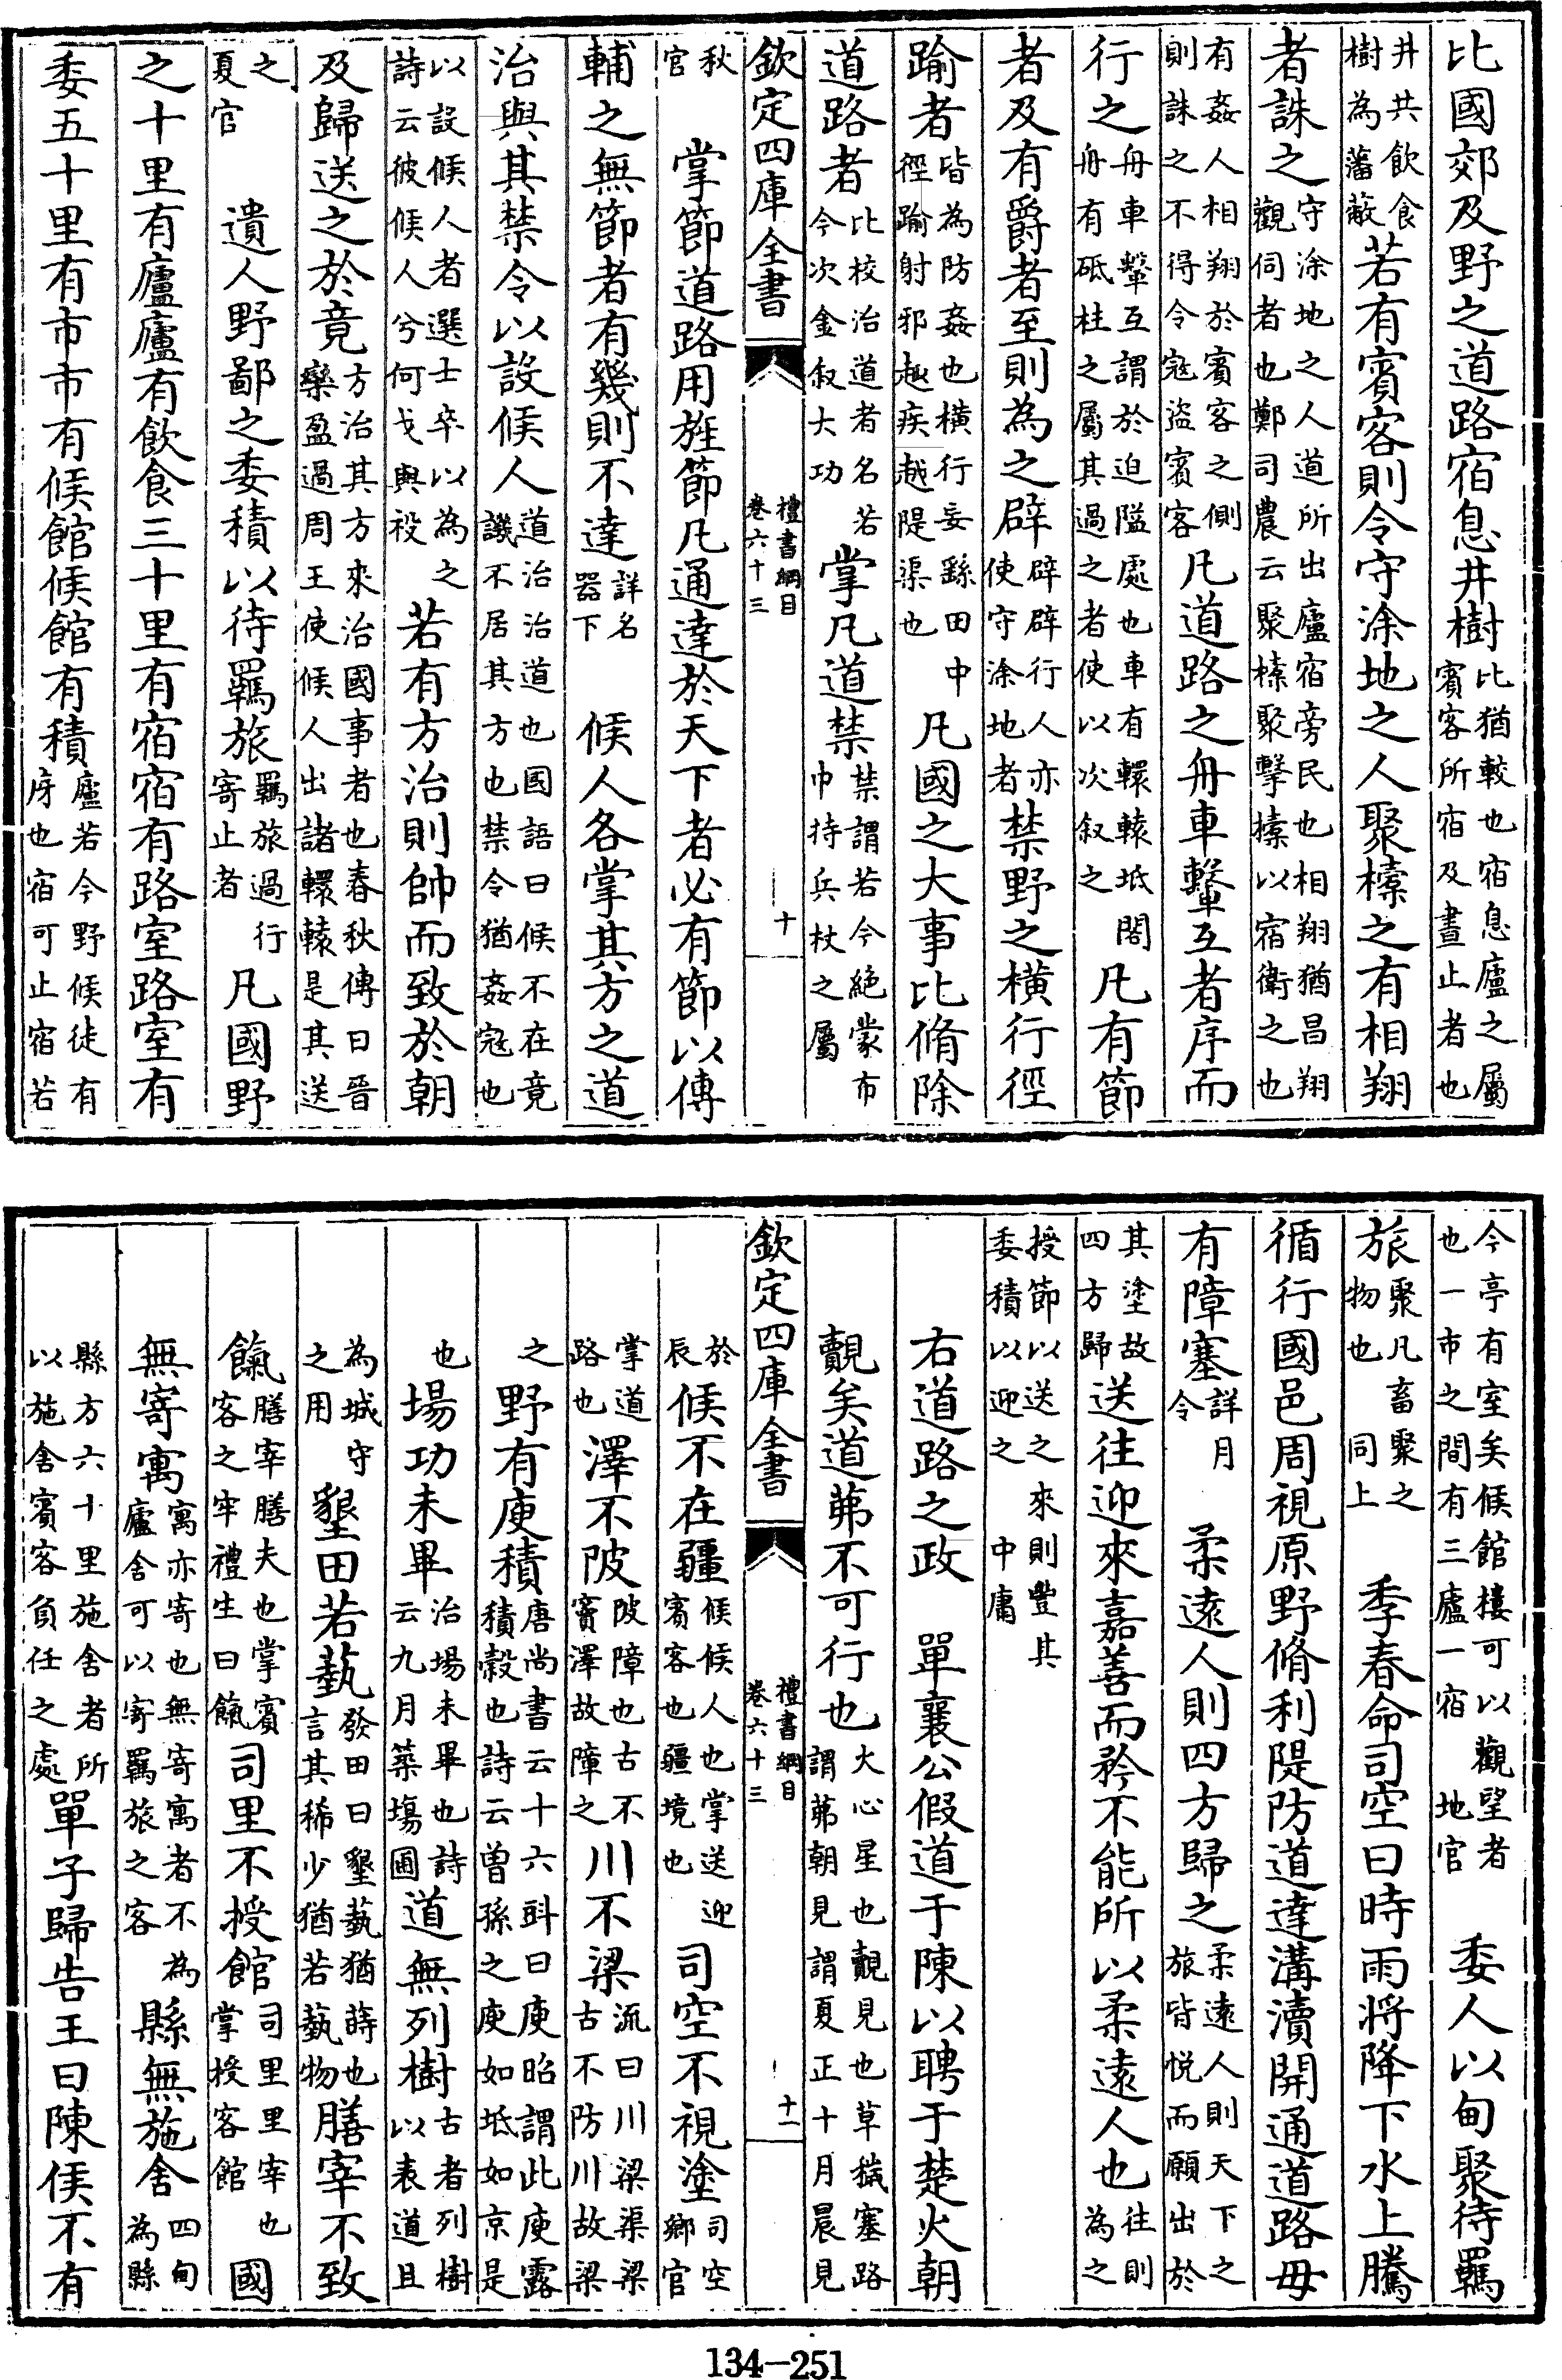 比國郊及野之道路宿息井樹比猶較也宿息廬之屬賓客所宿及晝止者也
井共飲食樹為藩蔽若有賓客則令守涂地之人聚𣝔之有相翔
者誅之守涂地之人道所出廬宿旁民也相翔猶昌翔觀伺者也鄭司農云聚𣝔聚擊𣝔以宿衛之也
有姦人相翔於賓客之側則誅之不得令寇盜賓客凡道路之舟車轚互者序而
行之舟車轚互謂於迫隘處也車有轘轅坻閣舟有砥柱之屬其過之者使以次叙之凡有節
者及有爵者至則為之辟辟辟行人亦使守涂地者禁野之橫行徑
踰者皆為防姦也橫行妄繇田中徑踰射邪趣疾越隄渠也凡國之大事比脩除
道路者比校治道者名若今次金叙大功掌凡道禁禁謂若今絕蒙布巾持兵杖之屬
欽定四庫全書 禮書綱目 卷六十三 十
秋官掌節道路用旌節凡通達於天下者必有節以傳
輔之無節者有幾則不達詳名器下候人各掌其方之道
治與其禁令以設候人道治治道也國語曰候不在竟譏不居其方也禁令猶姦寇也
以設候人者選士卒以為之詩云彼候人兮何戈與祋若有方治則帥而致於朝
及歸送之於竟方治其方來治國事者也春秋傳曰晉欒盈過周王使候人出諸轘轅是其送
之夏官遺人野鄙之委積以待羈旅羈旅過行寄止者凡國野
之十里有廬廬有飲食三十里有宿宿有路室路室有
委五十里有市市有候館候館有積廬若今野候徒有庌也宿可止宿若
今亭有室矣候館樓可以觀望者也一市之間有三廬一宿地官委人以甸聚待羈
旅聚凡畜聚之物也同上季春命司空曰時雨將降下水上騰
循行國邑周視原野脩利隄防道達溝瀆開通道路毋
有障塞詳月令柔遠人則四方歸之柔遠人則天下之旅皆悅而願出於
其塗故四方歸送往迎來嘉善而矜不能所以柔遠人也往則為之
授節以送之來則豐其委積以迎之中庸
右道路之政單襄公假道于陳以聘于楚火朝
覿矣道茀不可行也火心星也覿見也草穢塞路謂茀朝見謂夏正十月晨見
欽定四庫全書 禮書綱目 卷六十三 十一
於辰候不在疆候候人也掌送迎賓客也疆境也司空不視塗司空鄉官
掌道路也澤不陂陂障也古不竇澤故障之川不梁流曰川梁渠梁古不防川故梁
之野有庾積唐尚書云十六斗曰庾昭謂此庾露積穀也詩云曾孫之庾如坻如京是
也場功未畢治場未畢也詩云九月築場圃道無列樹古者列樹以表道且
為城守之用墾田若蓺發田曰墾蓺猶蒔也言其稀少猶若蓺物膳宰不致
餼膳宰膳夫也掌賓客之牢禮生曰餼司里不授館司里里宰也掌授客館國
無寄寓寓亦寄也無寄寓者不為廬舍可以寄羈旅之客縣無施舍四甸為縣
縣方六十里施舍者所以施舍賓客負任之處單子歸告王曰陳侯不有
134-251